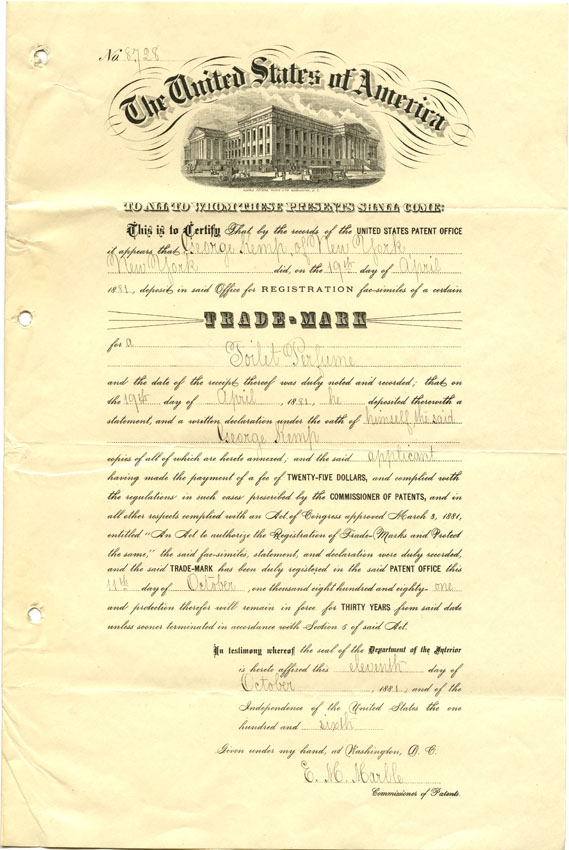 No. 8,728
The United States of America
TO ALL TO WHOM THESE PRESENTS SHALL COME:
This is to Certify That by the records of the UNITED STATES PATENT OFFICE
it appears that George Kemp, of New York,
New York did, on the 19th day of April
1881, deposit in said Office for REGISTRATION fac-similes of a certain
TRADE-MARK
for a
Toilet Perfume
and the date of the receipt thereof was duly noted and recorded; that on
the 19th day of April, 1881, he deposited therewith a
statement, and a written declaration under the oath of himself the said
George Kemp
copies of all of which are hereto annexed; and the said applicant
having made the payment of a fee of TWENTY-FIVE DOLLARS, and complied with
the regulations in such cases prescribed by the COMMISSIONER OF PATENTS, and in
all other respects complied with an Act of Congress approved March 3, 1881,
entitled "An Act to authorize the Registration of Trade-Marks and Protect
the same," the said fac-similes, statement, and declaration were duly recorded,
and the said TRADE-MARK has been duly registered in the said PATENT OFFICE this
11th day of October, one thousand eight hundred and eighty-one
and protection therefor will remain in force for THIRTY YEARS from said date
unless sooner terminated in accordance with Section 5 of said Act.
In testimony whereof the seal of the Department of the Interior
is hereto affixed this eleventh day of
October, 1881, and of the
Independence of the United States the one
hundred and sixth
Given under my hand, at Washington, D. C.
E. M. Marble
Commissioner of Patents.